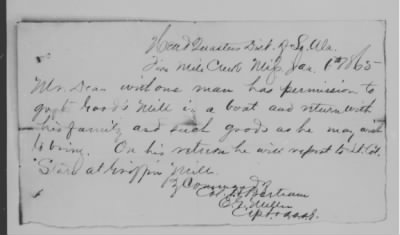 Head Quarters Dist. of So. Ala.
Five Mile Creek Miss. Jan. 6th 1865
Mr. Dean with one man has permission to
go to Wood's Mill in a boat and return with
his family and such goods as he may wish
to bring. On his return he will report to Lt. Col.
at Griffin Mill.
By Command of
Col. Bertram